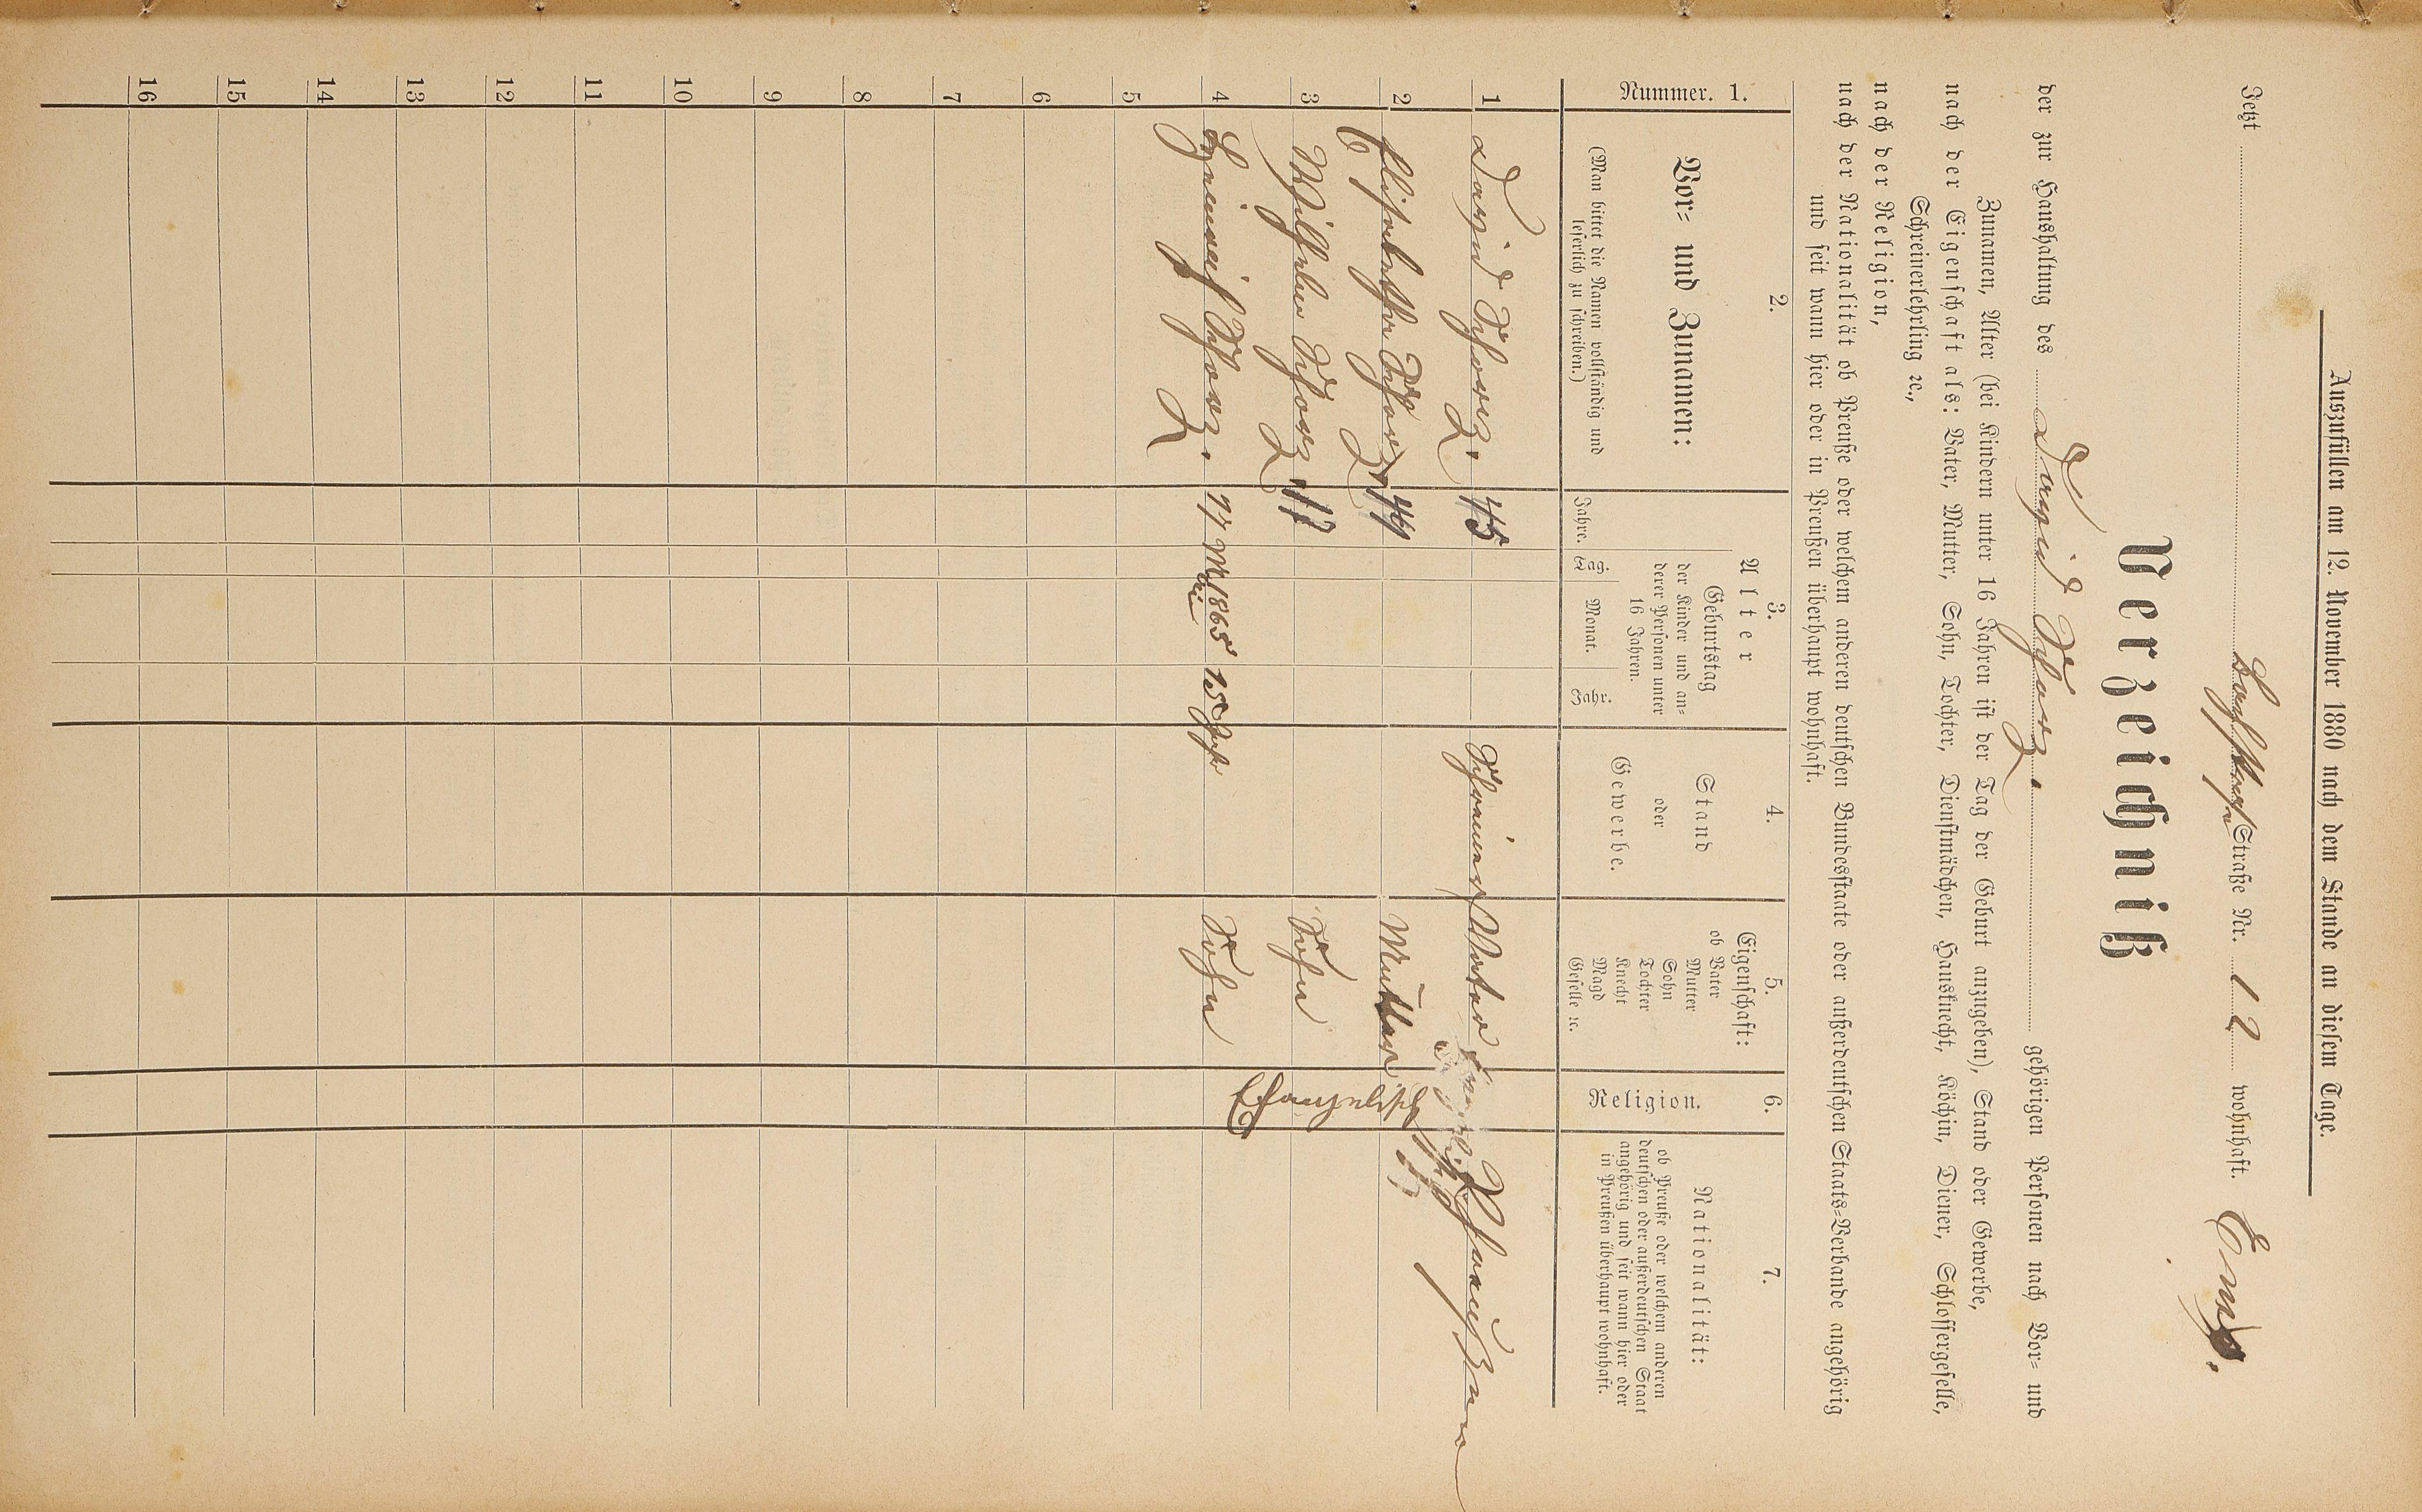 Auszufüllen am 12. November 1880 nach dem Stande an diesem Tage.
Jetzt Straße Nr. 12 wohnhaft. Ems.
Verzeichniß
der zur Haushaltung des David Schorz. gehörigen Personen nach Vor- und
Zunamen, Alter (bei Kindern unter 16 Jahren ist der Tag der Geburt anzugeben), Stand oder Gewerbe,
nach der Eigenschaft als: Vater, Mutter, Sohn, Tochter, Dienstmädchen, Hausknecht, Köchin, Diener, Schlossergeselle,
Schreinerlehrling ꝛc.,
nach der Religion,
nach der Nationalität ob Preuße oder welchem anderen deutschen Bundesstaate oder außerdeutschen Staats-Verbande angehörig
und seit wann hier oder in Preußen überhaupt wohnhaft.
Nummer. 1.
2.
Vor- und Zunamen:
(Man bittet die Namen vollständig und
leserlich zu schreiben.)
3.
Alter
Jahre.
Geburtstag
der Kinder und an-
derer Personen unter
16 Jahren.
Tag. Monat. Jahr.
4.
Stand
oder
Gewerbe.
5.
Eigenschaft:
ob Vater
Mutter
Sohn
Tochter
Knecht
Magd
Geselle ꝛc.
6.
Religion.
7.
Nationalität:
ob Preuße oder welchem anderen
deutschen oder außerdeutschen Staat
angehörig und seit wann hier oder
in Preußen überhaupt wohnhaft.
1 David Schorz. 45 Schreiner Vater
2 Elisabetha Schorz 44 Mutter Efangelisch
3 Wilhelm Schorz 17 Sohn
4 Heinrich Schorz. 27 Mai 1865 15 Jahr Sohn
5
6
7
8
9
10
11
12
13
14
15
16